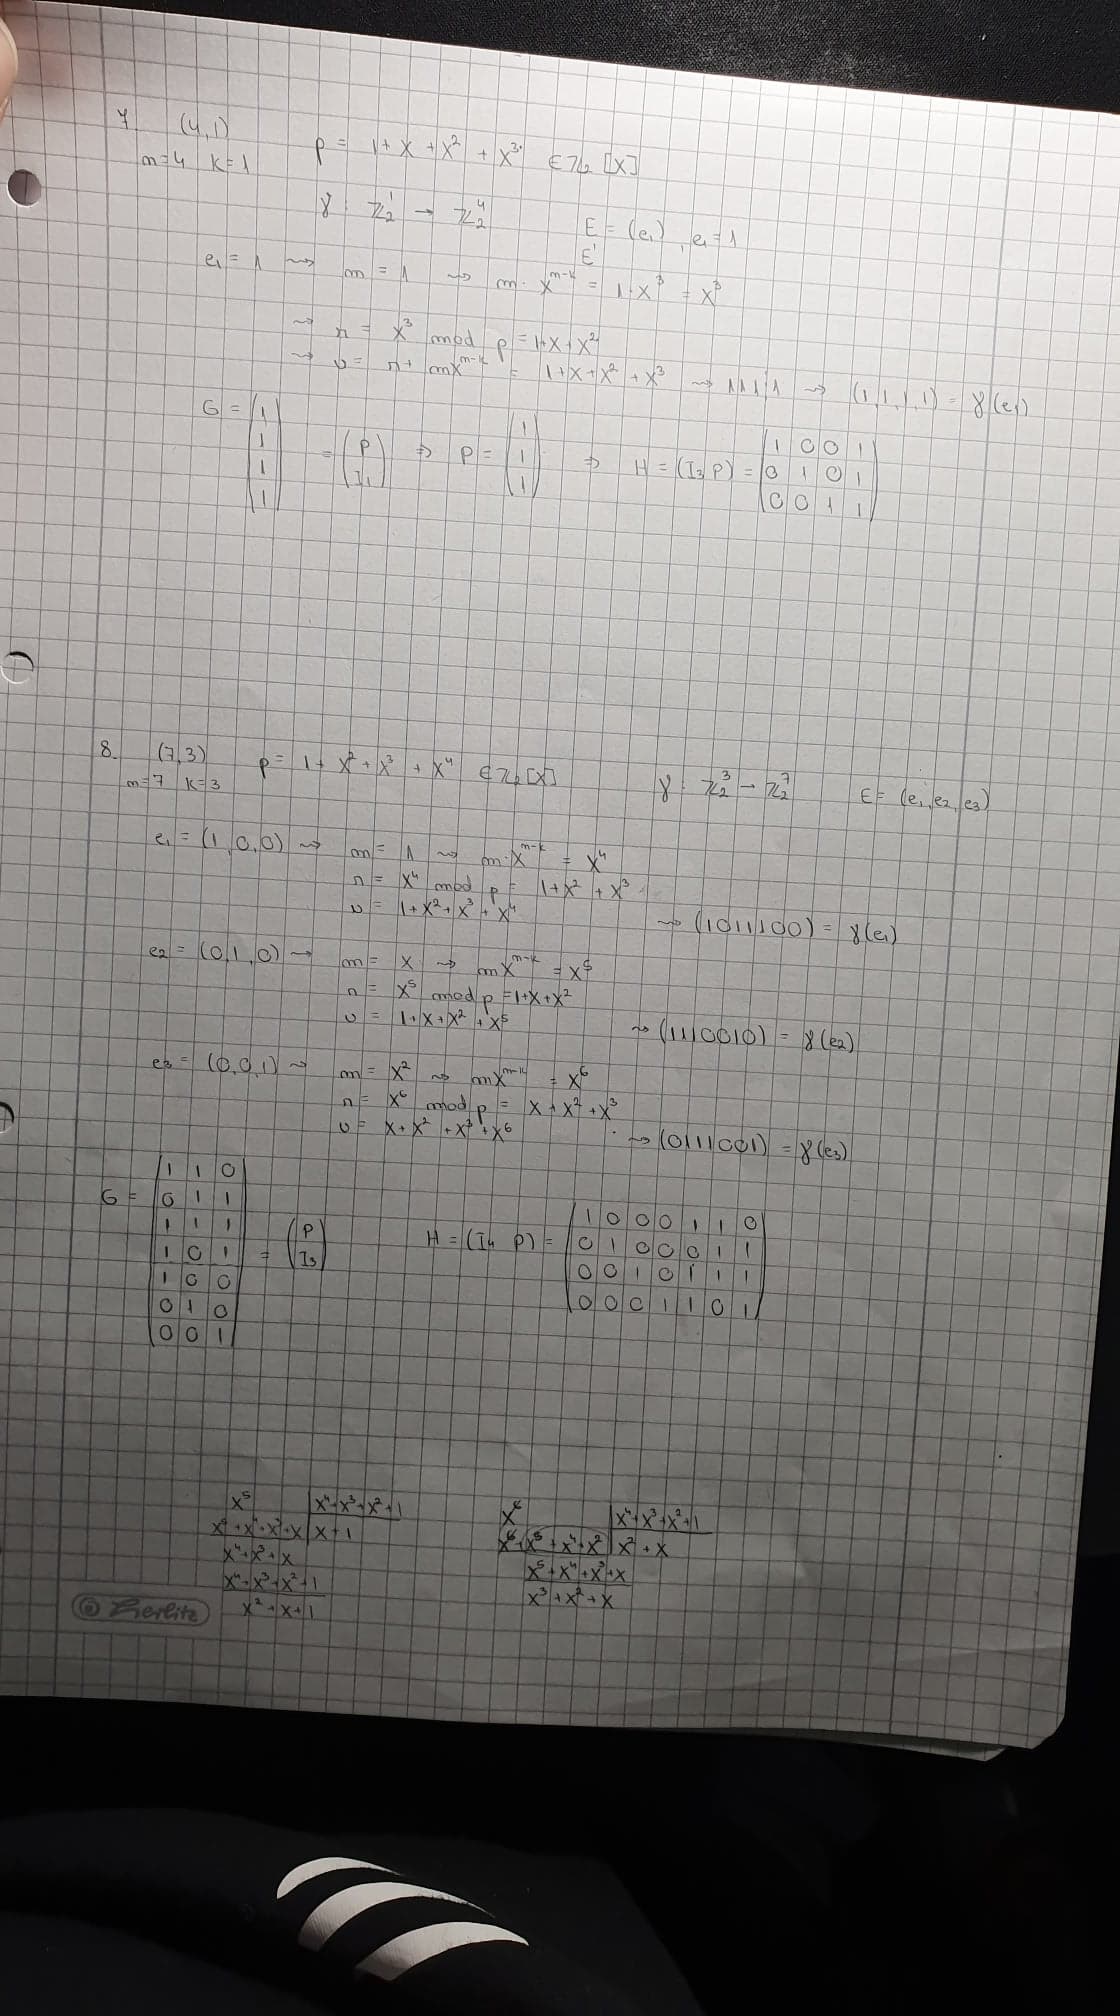 7. (4,1) p = 1 + x + x² + x³ ∈ ℤ₂[X]
m=4 k=1
γ : ℤ₂¹ → ℤ₂⁴ E = (e₁), e₁ = 1
E'
e₁ = 1 ⇝ m = 1 ⇝ m·x^{n-k} = 1·x³ = x³
⇝ r = x³ mod p = 1+x+x²
⇝ v = r + mx^{n-k} = 1+x+x²+x³ ⇝ 1111 ⇝ (1,1,1,1) = γ(e₁)
G = (1 = (P ⇒ P = (1 ⇒ H = (I₃ P) = (1 0 0 1
1 I₁) 1 0 1 0 1
1 1) 0 0 1 1)
1)
8. (7,3) p = 1 + x² + x³ + x⁴ ∈ ℤ₂[X] γ : ℤ₂³ → ℤ₂⁷ E = (e₁, e₂, e₃)
m=7 k=3
e₁ = (1,0,0) ⇝ m = 1 ⇝ m·x^{n-k} = x⁴
r = x⁴ mod p = 1+x²+x³
v = 1+x²+x³+x⁴ ⇝ (1011100) = γ(e₁)
e₂ = (0,1,0) ⇝ m = x ⇝ mx^{n-k} = x⁵
r = x⁵ mod p = 1+x+x²
v = 1+x+x²+x⁵ ⇝ (1110010) = γ(e₂)
e₃ = (0,0,1) ⇝ m = x² ⇝ mx^{n-k} = x⁶
r = x⁶ mod p = x+x²+x³
v = x+x²+x³+x⁶ ⇝ (0111001) = γ(e₃)
G = (1 1 0
0 1 1
1 1 1
1 0 1
1 0 0
0 1 0
0 0 1) = (P
I₃) H = (I₄ P) = (1 0 0 0 1 1 0
0 1 0 0 0 1 1
0 0 1 0 1 1 1
0 0 0 1 1 0 1)
x⁵ | x⁴+x³+x²+1
x⁵+x⁴+x³+x | x+1
x⁴+x³+x
x⁴+x³+x²+1
x²+x+1
x⁶ | x⁴+x³+x²+1
x⁶+x⁵+x⁴+x² | x²+x
x⁵+x⁴+x³+x
x³+x²+x
Herlitz